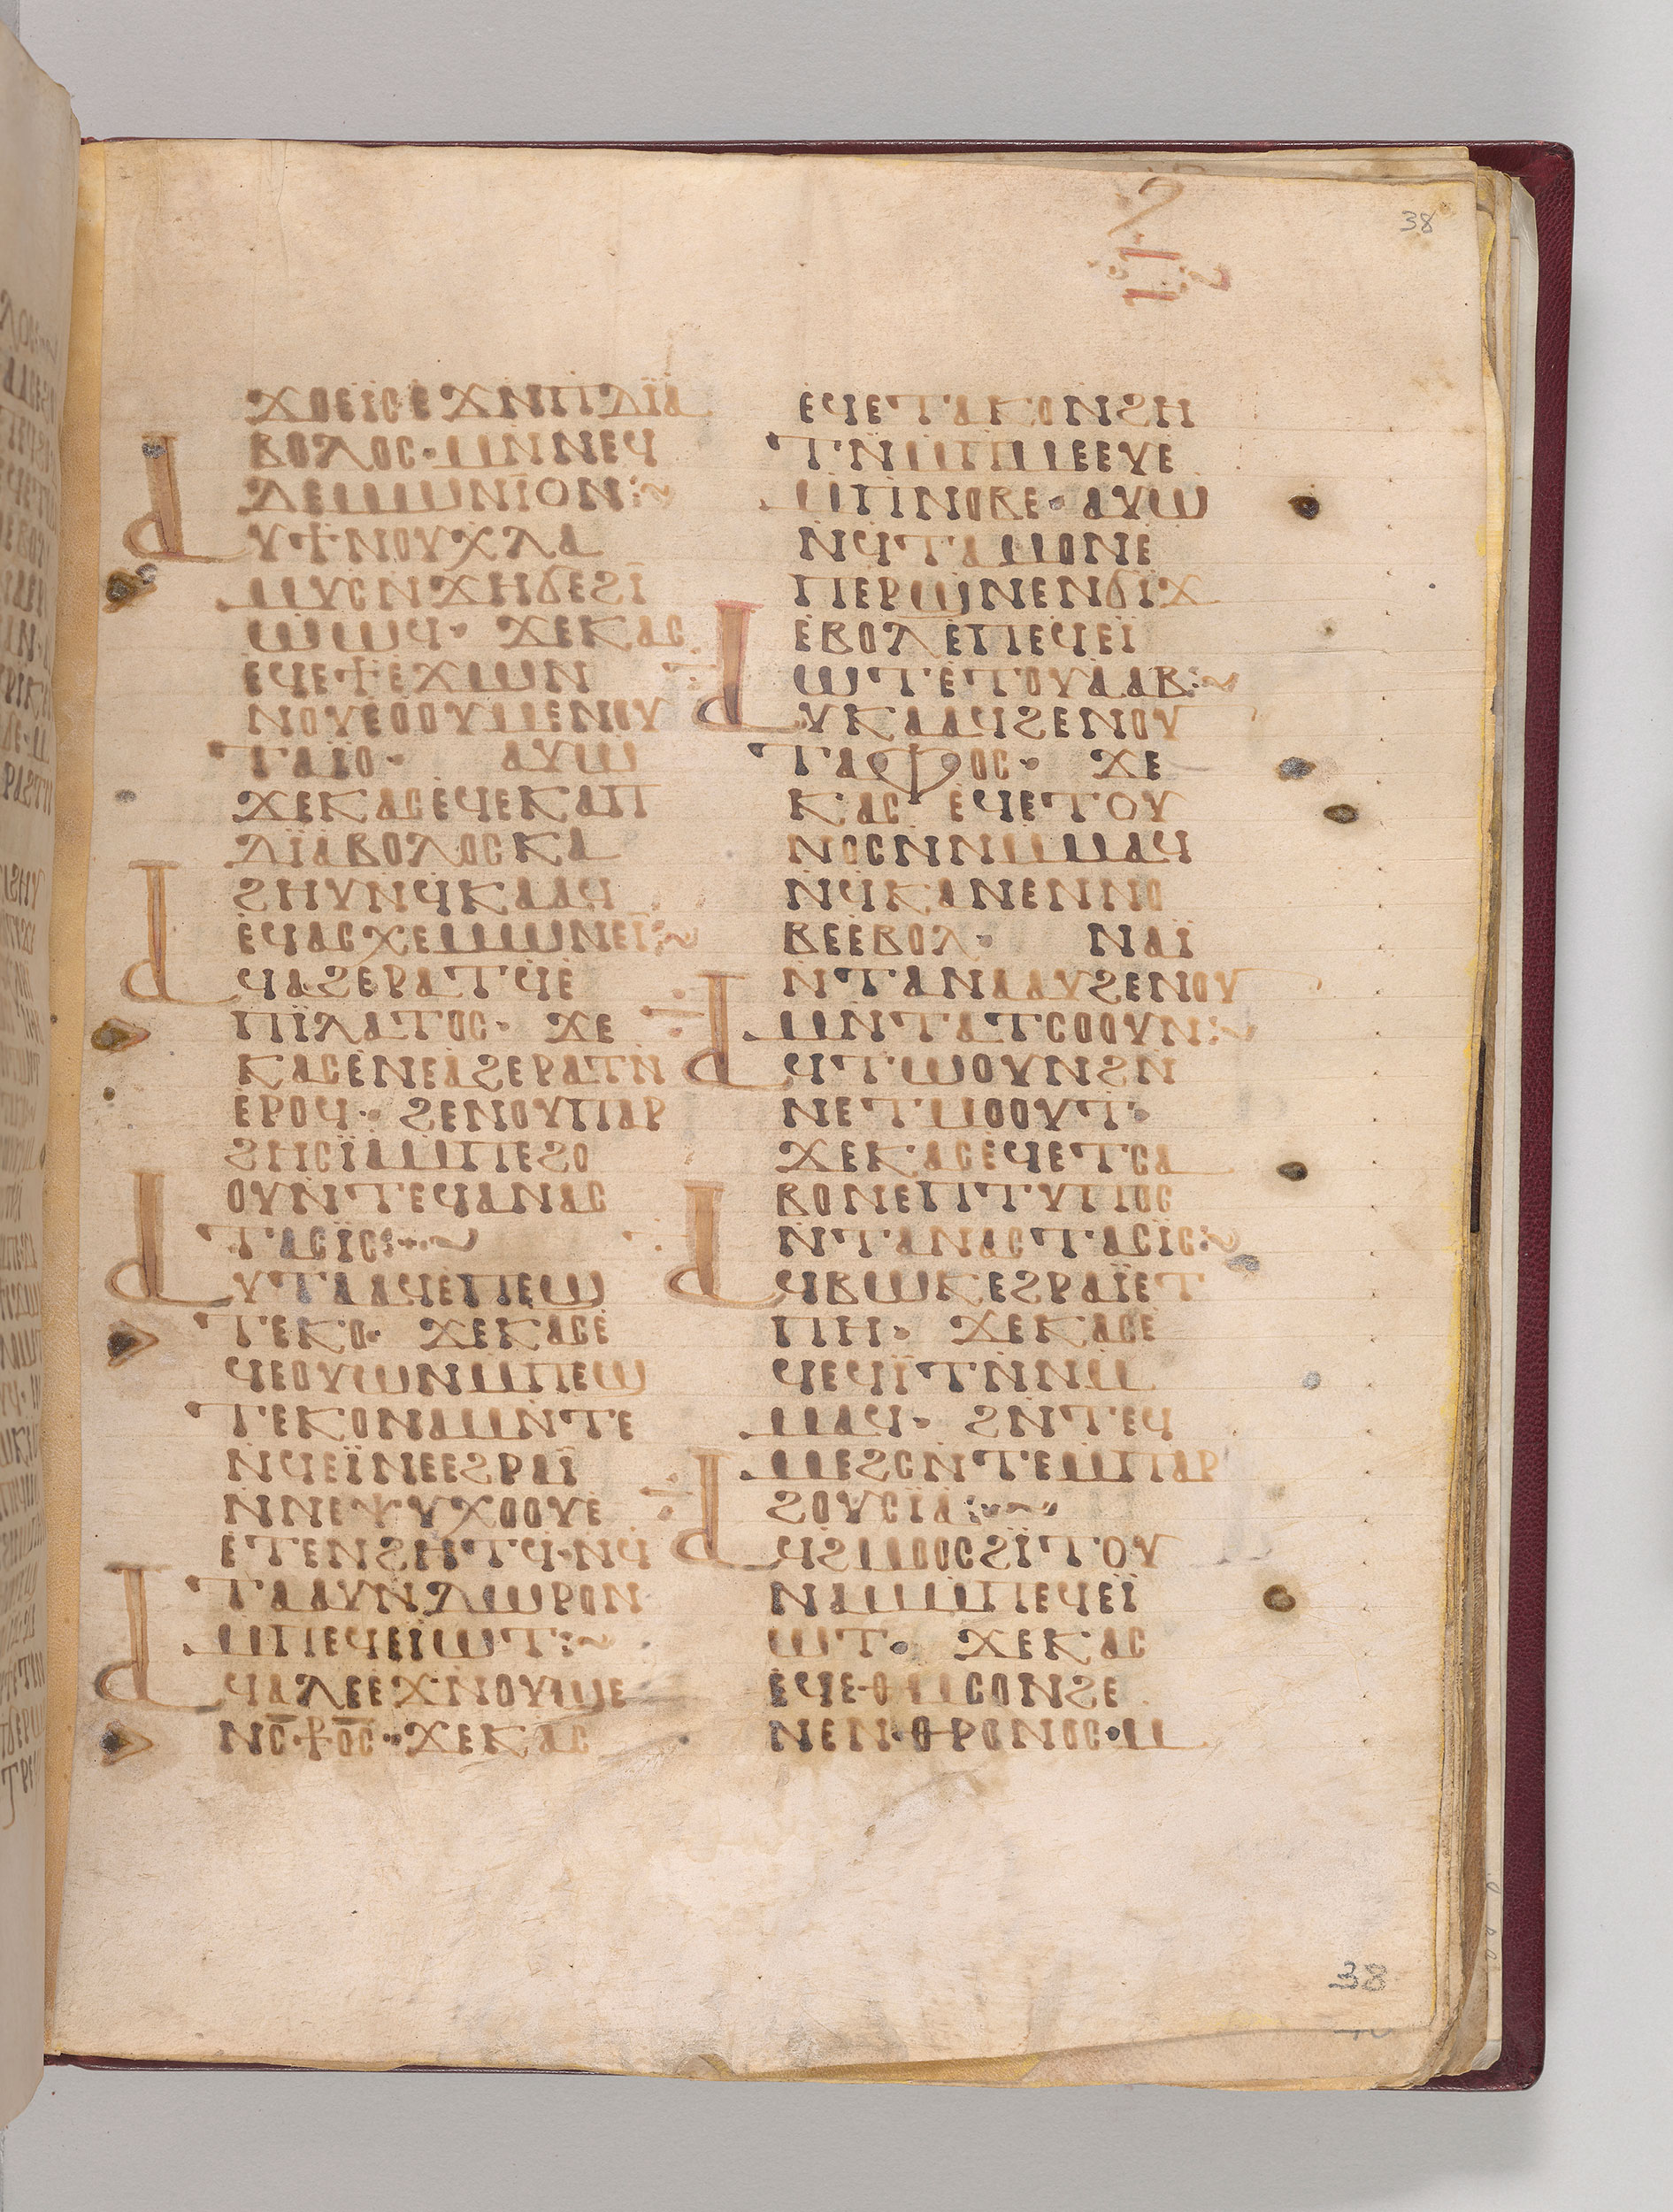 38
ϫⲟⲉⲓⲥ ⲉϫⲙⲡⲇⲓⲁ
ⲃⲟⲗⲟⲥ· ⲙⲛⲛⲉϥ
ⲇⲉⲙⲱⲛⲓⲟⲛ:~
ⲁⲩϯⲛⲟⲩⲭⲗⲁ
ⲙⲩⲥⲛϫⲏϭⲉϩⲓ
ⲱⲱϥ· ϫⲉⲕⲁⲥ
ⲉϥⲉϯⲉϫⲱⲛ
ⲛⲟⲩⲉⲟⲟⲩⲙⲛⲛⲟⲩ
ⲧⲁⲓⲟ· ⲁⲩⲱ
ϫⲉⲕⲁⲥⲉϥⲉⲕⲁⲡ
ⲇⲓⲁⲃⲟⲗⲟⲥⲕⲁ
ϩⲏⲩⲛϥⲕⲁⲁϥ
ⲉϥⲁⲥⲭⲉⲙⲱⲛⲉⲓ:~
ⲁϥⲁϩⲉⲣⲁⲧϥⲉ
ⲡⲓⲗⲁⲧⲟⲥ· ϫⲉ
ⲕⲁⲥⲉⲛⲉⲁϩⲉⲣⲁⲧⲛ
ⲉⲣⲟϥ· ϩⲉⲛⲟⲩⲡⲁⲣ
ϩⲏⲥⲓⲁⲙⲡⲉϩⲟ
ⲟⲩⲛⲧⲉϥⲁⲛⲁⲥ
ⲧⲁⲥⲓⲥ:~
ⲁⲩⲧⲁⲁϥⲉⲡⲉϣ
ⲧⲉⲕⲟ· ϫⲉⲕⲁⲥⲉ
ϥⲉⲟⲩⲱⲛⲙⲡⲉϣ
ⲧⲉⲕⲟⲛⲁⲙⲛⲧⲉ
ⲛϥⲉⲓⲛⲉⲉϩⲣⲁⲓ
ⲛⲛⲉⲯⲩⲭⲟⲟⲩⲉ
ⲉⲧⲉⲛϩⲏⲧϥ·ⲛϥ
ⲧⲁⲁⲩⲛⲇⲱⲣⲟⲛ
ⲙⲡⲉϥⲉⲓⲱⲧ:~
ⲁϥⲁⲗⲉⲉϫⲛⲟⲩϣⲉ
ⲛⲥ⳨ⲟⲥ· ϫⲉⲕⲁⲥ
ⲉϥⲉⲧⲁⲕⲟⲛϩⲏ
ⲧⲛⲙⲡⲙⲉⲉⲩⲉ
ⲙⲡⲛⲟⲃⲉ· ⲁⲩⲱ
ⲛϥⲧⲁⲙⲟⲛⲉ
ⲡⲉⲣϣⲛⲉⲛϭⲓϫ
ⲉⲃⲟⲗⲉⲡⲉϥⲉⲓ
ⲱⲧⲉⲧⲟⲩⲁⲁⲃ:~
ⲁⲩⲕⲁⲁϥϩⲉⲛⲟⲩ
ⲧⲁⲫⲟⲥ· ϫⲉ
ⲕⲁⲥ ⲉϥⲉⲧⲟⲩ
ⲛⲟⲥⲛⲛⲙⲙⲁϥ
ⲛϥⲕⲁⲛⲉⲛⲛⲟ
ⲃⲉⲉⲃⲟⲗ· ⲛⲁⲓ
ⲛⲧⲁⲛⲁⲁⲩϩⲉⲛⲟⲩ
ⲙⲛⲧⲁⲧⲥⲟⲟⲩⲛ:~
ⲁϥⲧⲱⲟⲩⲛϩⲛ
ⲛⲉⲧⲙⲟⲟⲩⲧ·
ϫⲉⲕⲁⲥⲉϥⲉⲧⲥⲁ
ⲃⲟⲛⲉⲡⲧⲩⲡⲟⲥ
ⲛⲧⲁⲛⲁⲥⲧⲁⲥⲓⲥ:~
ⲁϥⲃⲱⲕⲉϩⲣⲁⲓⲉⲧ
ⲡⲏ· ϫⲉⲕⲁⲥⲉ
ϥⲉϥⲓⲧⲛⲛⲙ
ⲙⲁϥ· ϩⲛⲧⲉϥ
ⲙⲉϩⲥⲛⲧⲉⲙⲡⲁⲣ
ϩⲟⲩⲥⲓⲁ:~
ⲁϥϩⲙⲟⲟⲥϩⲓⲧⲟⲩ
ⲛⲁⲙⲙⲡⲉϥⲉⲓ
ⲱⲧ· ϫⲉⲕⲁⲥ
ⲉϥⲉⲑⲙⲥⲟⲛϩⲉ
ⲛⲉⲛ·ⲑⲣⲟⲛⲟⲥ·ⲙ
38